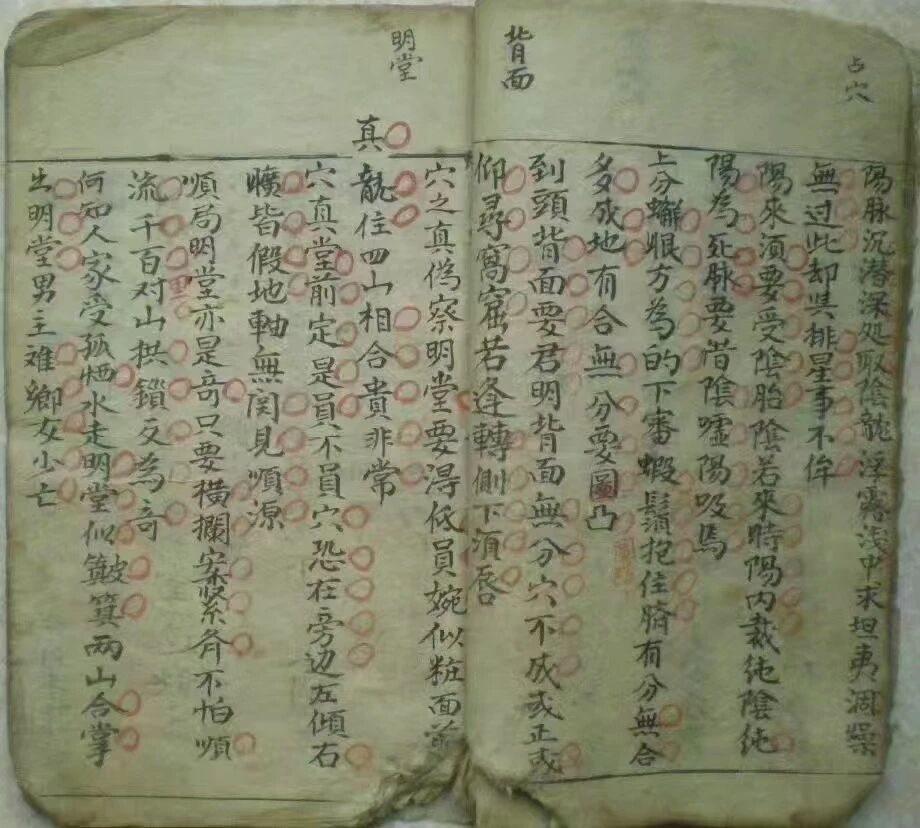 占穴
陽脉沉潜深処取陰龍浮露浅中求坦夷凋燥
無过此却與排星事不侔
陽來須要受陰胎陰若來時陽内裁純陰純
陽為死脉要惜陰嘘陽吸馬
上分蠏眼方為的下審蝦鬚抱住臍有分無合
多成地有合無分要圖凸
背面
到頭背面要君明背面無分穴不成或正或
仰尋窩窟若逢轉側下須唇
明堂
穴之真偽察明堂要淂低員婉似粧面前
真
龍住四山相合貴非常
穴真堂前定是員不員穴恐在旁边左傾右
曠皆假地軸無関見順源
順局明堂亦是竒只要横攔案緊斉不怕順
流千百对山拱鎖反為竒
何知人家受孤恓水走明堂似簸箕两山合掌
出明堂男主难鄉女少亡